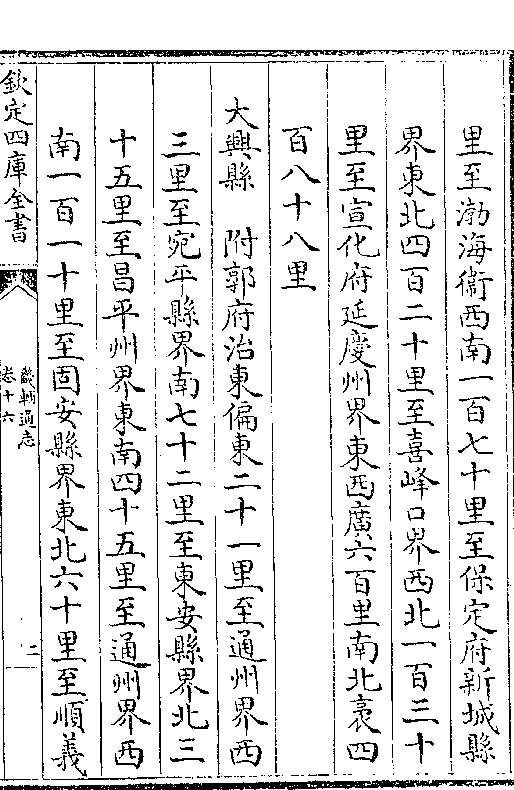 里至渤海衞西南一百七十里至保定府新城縣
界東北四百二十里至喜峰口界西北一百三十
里至宣化府延慶州界東西廣六百里南北袤四
百八十八里
大興縣　附郭府治東偏東二十一里至通州界西
三里至宛平縣界南七十二里至東安縣界北三
十五里至昌平州界東南四十五里至通州界西
南一百一十里至固安縣界東北六十里至順義
欽定四庫全書
畿輔通志
卷十六
二